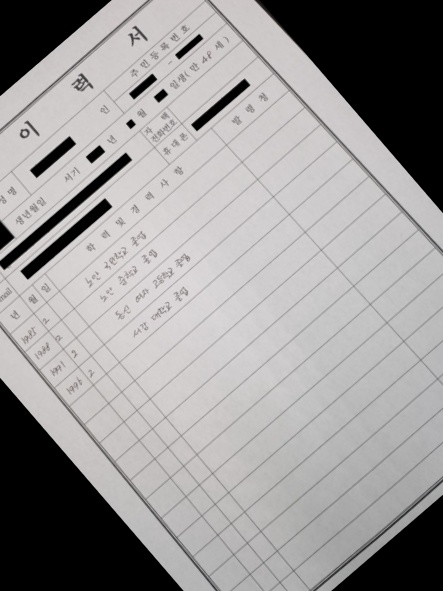 이 력 서
성 명 인 주 민 등 록 번 호
-
생년월일 서기 년 월 일생 ( 만 48 세 )
자 택 전화번호
휴 대 폰
mail
년 월 일 학 력 및 경 력 사 항 발 령 청
1985 2 노안 국민학교 졸업
1988 2 노안 중학교 졸업
1991 2 동신 여자 고등학교 졸업
1996 2 대학교 졸업